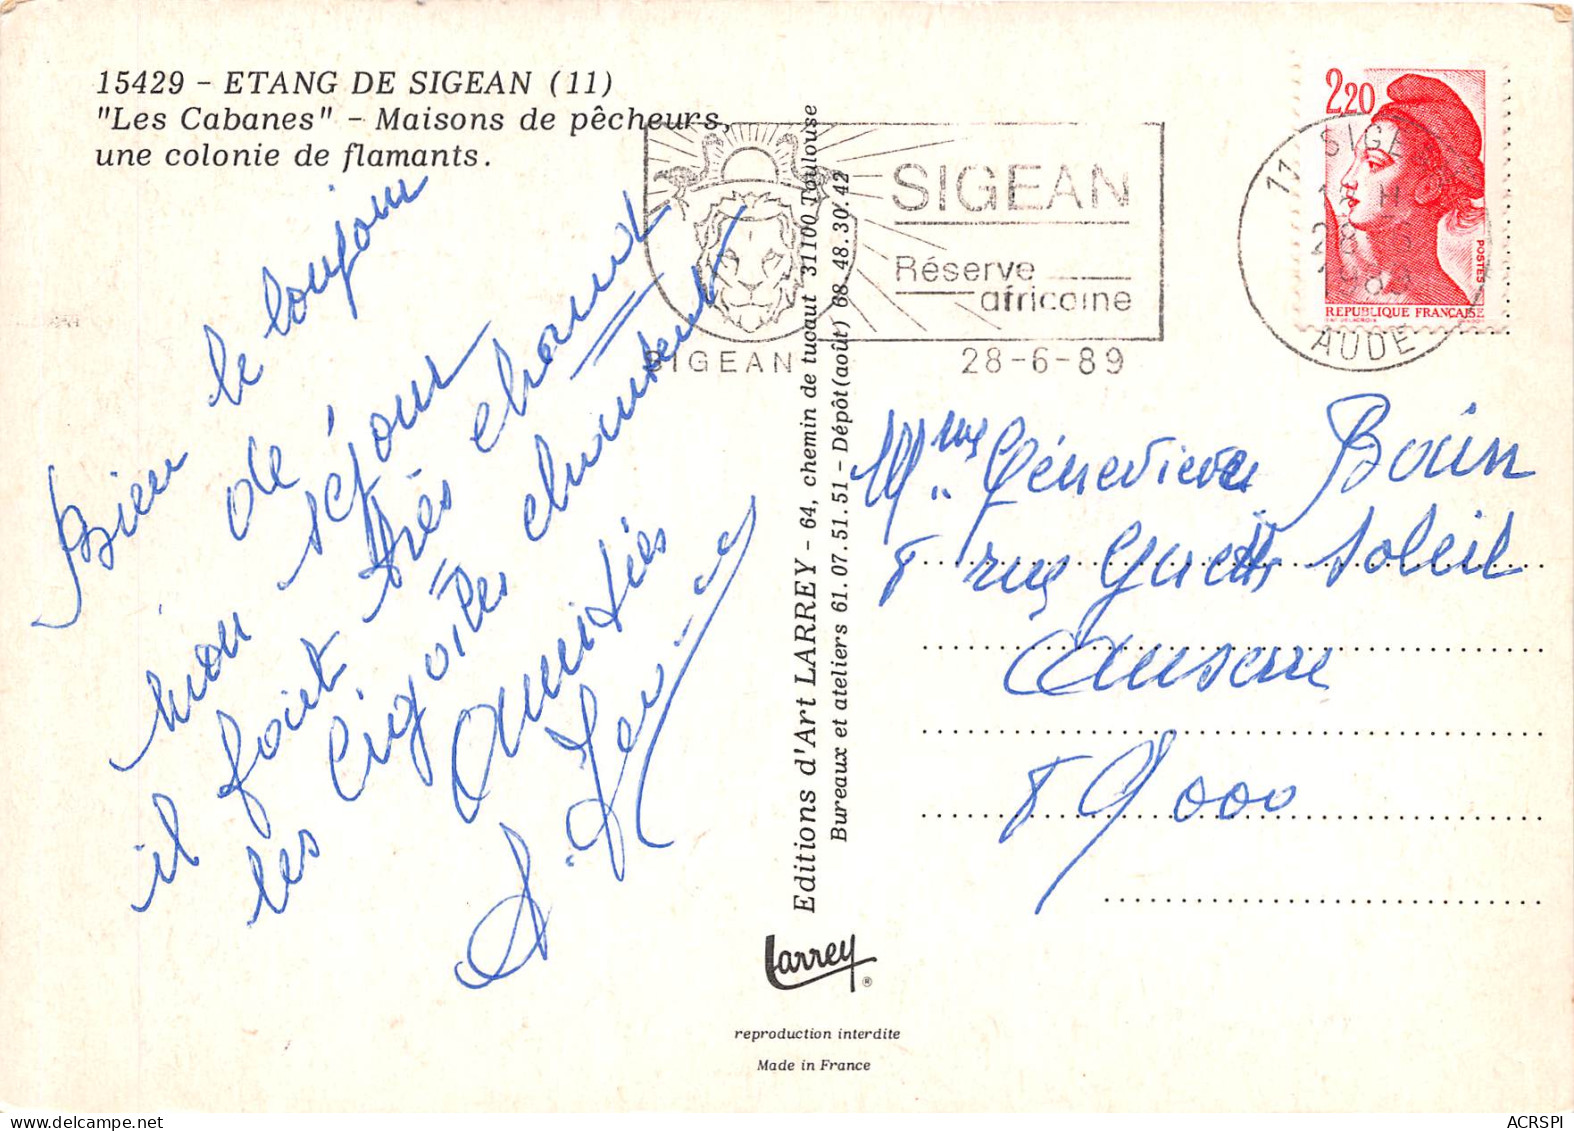 15429 - ETANG DE SIGEAN (11)
"Les Cabanes" - Maisons de pêcheurs,
une colonie de flamants.
Bien le bonjour
de
mon séjour
il fait très chaud
les cigales chantent
Amitiés
Editions d'Art LARREY - 64, chemin de tucaut 31100 Toulouse
Bureaux et ateliers 61.07.51.51 - Dépôt(août) 68.48.30.42
larrey ®
reproduction interdite
Made in France
SIGEAN
Réserve
africaine
SIGEAN 28-6-89
2,20
POSTES
REPUBLIQUE FRANÇAISE
11 SIGEAN
28-6
1989
AUDE
Mme Géneviève
rue soleil
Auxerre
89000
ACRSPI